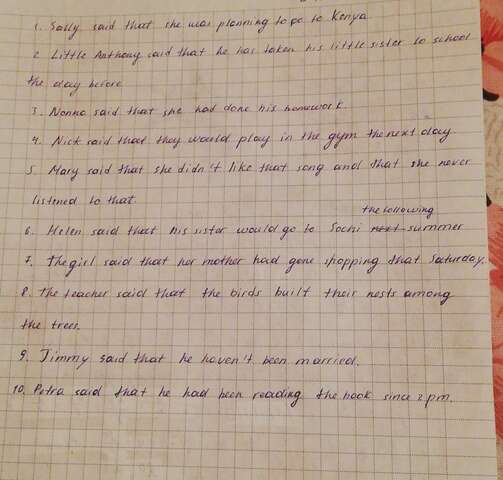 1. Sally said that she was planning to go to Kenya
2. Little Anthony said that he has taken his little sister to school
the day before
3. Nonna said that she had done his homework
4. Nick said that they would play in the gym the next day.
5. Mary said that she didn't like that song and that she never
listened to that.
the following
6. Helen said that his sister would go to Sochi next summer
7. The girl said that her mother had gone shopping that Saturday.
8. The teacher said that the birds built their nests among
the trees.
9. Jimmy said that he haven't been married.
10. Petra said that he had been reading the book since 2 pm.